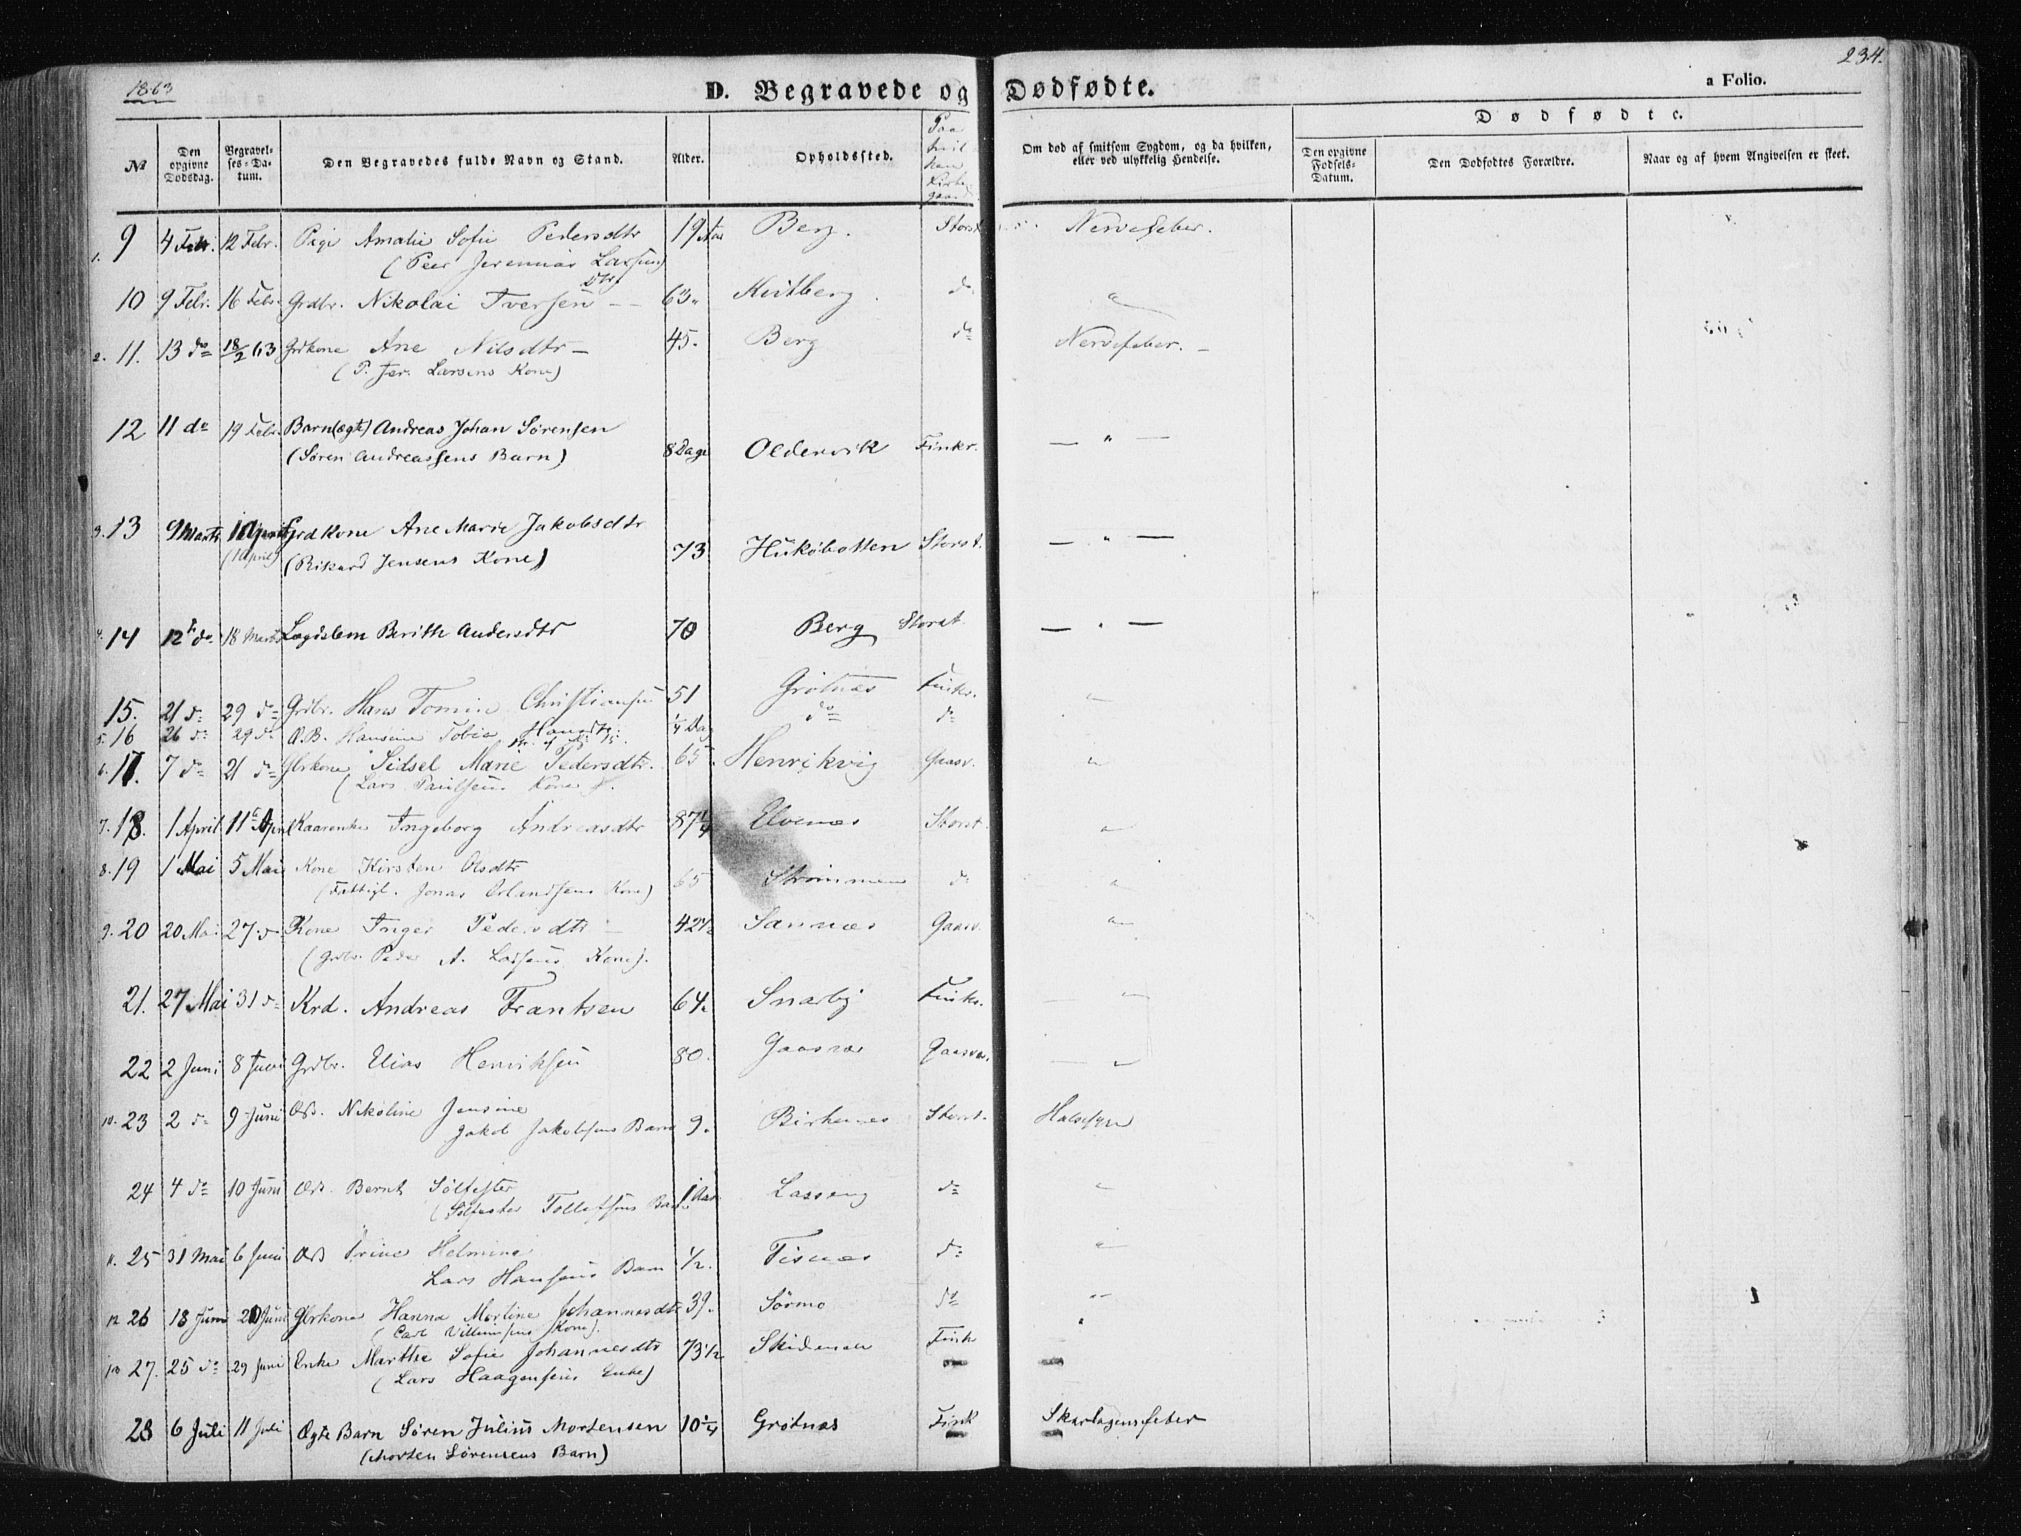 1863
234.
D. Begravede og Dødfødte.
a Folio.
Dødfødte.
№ Den opgivne Dødsdag. Begravelses-Datum. Den Begravedes fulde Navn og Stand. Alder. Opholdssted. Paa hvilken Kirkegaard Om død af smitsom Sygdom, og da hvilken, eller ved ulykkelig Hendelse. Den opgivne Fødsels-Datum. Den Dødfødtes Forældre. Naar og af hvem Angivelsen er skeet.
1. 9 4 Febr. 12 Febr. Pige Amalie Sofie Pedersdtr 19 Aar Berg. Storst. Nervefeber.
(Peer Jeremias Larsens
Dtr)
10 9 Febr. 16 Febr. Grdbr. Nikolai Iversen — 63 Kvitberg. do "
2. 11. 13 do 18/2 63 Grdkone Ane Nilsdtr — 45. Berg do Nervefeber. —
(P. Jer. Larsens Kone)
12 11 do 19 Febr. Barn (ægte) Andreas Johan Sørensen
(Søren Andreassens Barn) 8 Dage Oldervik Finkr. — " —
3. 13 9 Marts 1 April Grdkone Ane Marie Jakobsdtr
(1 April) (Rikard Jensens Kone) 73 Hukøbotten Storst. — " —
4. 14 12 do 18 Marts Lægdslem Berith Andersdtr 70 Berg Storst. — " —
15. 21 do 29 do Grdbr. Hans Tomin Christiansen 51 Grøtnæs Finkr. "
5. 16 26 do 29 do Æ.B. Hansine Tobia Hansdtr 1/4 Dag do do
6. 17. 7 do 21 do Gbrkone Sidsel Marie Pedersdtr. 65 Henrikvig Gaasv. "
(Lars Paulsens Kone).
7. 18. 1 April 11 April Kaarenke Ingeborg Andreasdtr 87 1/4 Elvenes Storst. "
8. 19 1 Mai 5 Mai Kone Kirsten Olsdtr
(Fattigl. Jonas Erlandsens Kone) 65 Strømmen do "
9. 20 20 Mai 27 do Kone Inger Pedersdtr — 42 1/2 Sannæs Gaasv. "
(Grdbr. Peder A. Larsens Kone).
21. 27 Mai 31 do Krd. Andreas Frantsen 64. Snarby Finkr. — "
22 2 Juni 8 Juni Grdbr. Elias Henriksen 80. Gaasvær Gaasvær. — "
10. 23 2 do 9 Juni ÆB. Nikoline Jensine
Jakob Jakobsens Barn 9. Birkenes Storst. Halssyge
24 4 do 10 Juni ÆB. Bernt Sølfester
(Sølfester Tollefsens Barn 1 Aar Lasseng do "
11. 25 31 Mai 6 Juni ÆB Trine Helmine
Lars Hansens Barn 1/2. Tisnæs do "
12 26 18 Juni 20 Juni Gbrkone Hanna Martine Johannesdtr 39. Sørmo do "
(Carl Villumsens Kone).
13 27. 25 do 29 Juni Enke Marthe Sofie Johannesdtr 73 1/2 Skidenelv Fink "
(Lars Haagensens Enke)
28 6 Juli 11 Juli Ægte Barn Søren Julius Mortensen 10 1/4 Grøtnæs Fink Skarlagensfeber
(Morten Sørensens Barn)